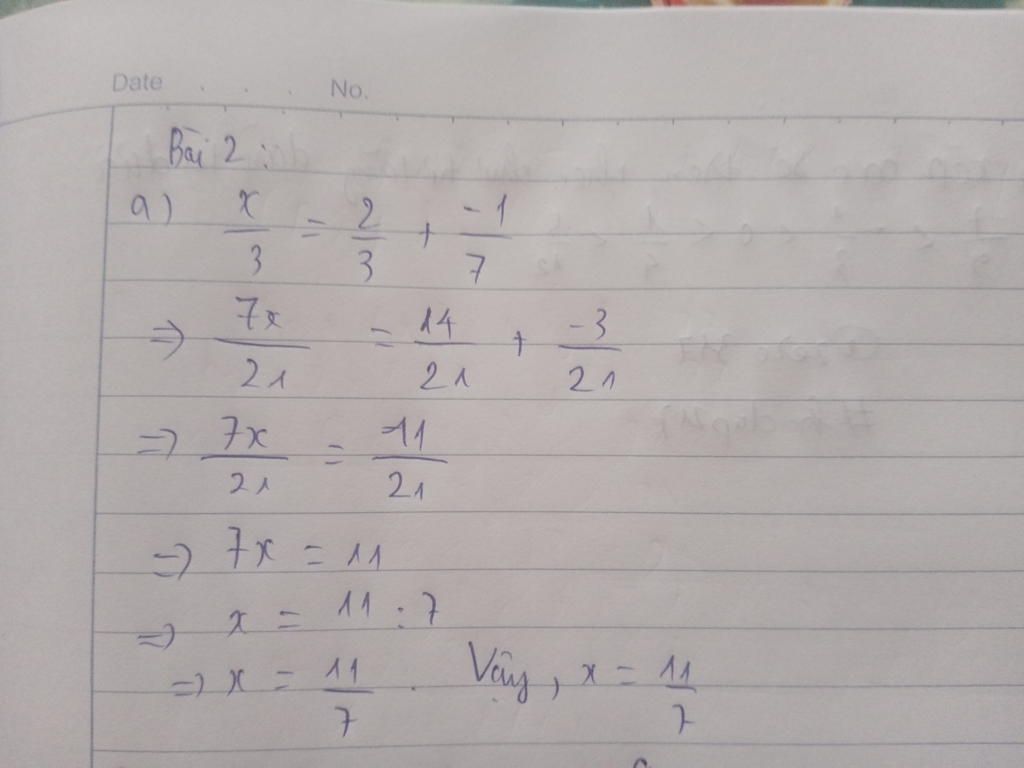 Date . . . No.
Bài 2:
a) x/3 = 2/3 + -1/7
=> 7x/21 = 14/21 + -3/21
=> 7x/21 = 11/21
=> 7x = 11
=> x = 11 : 7
=> x = 11/7. Vậy, x = 11/7